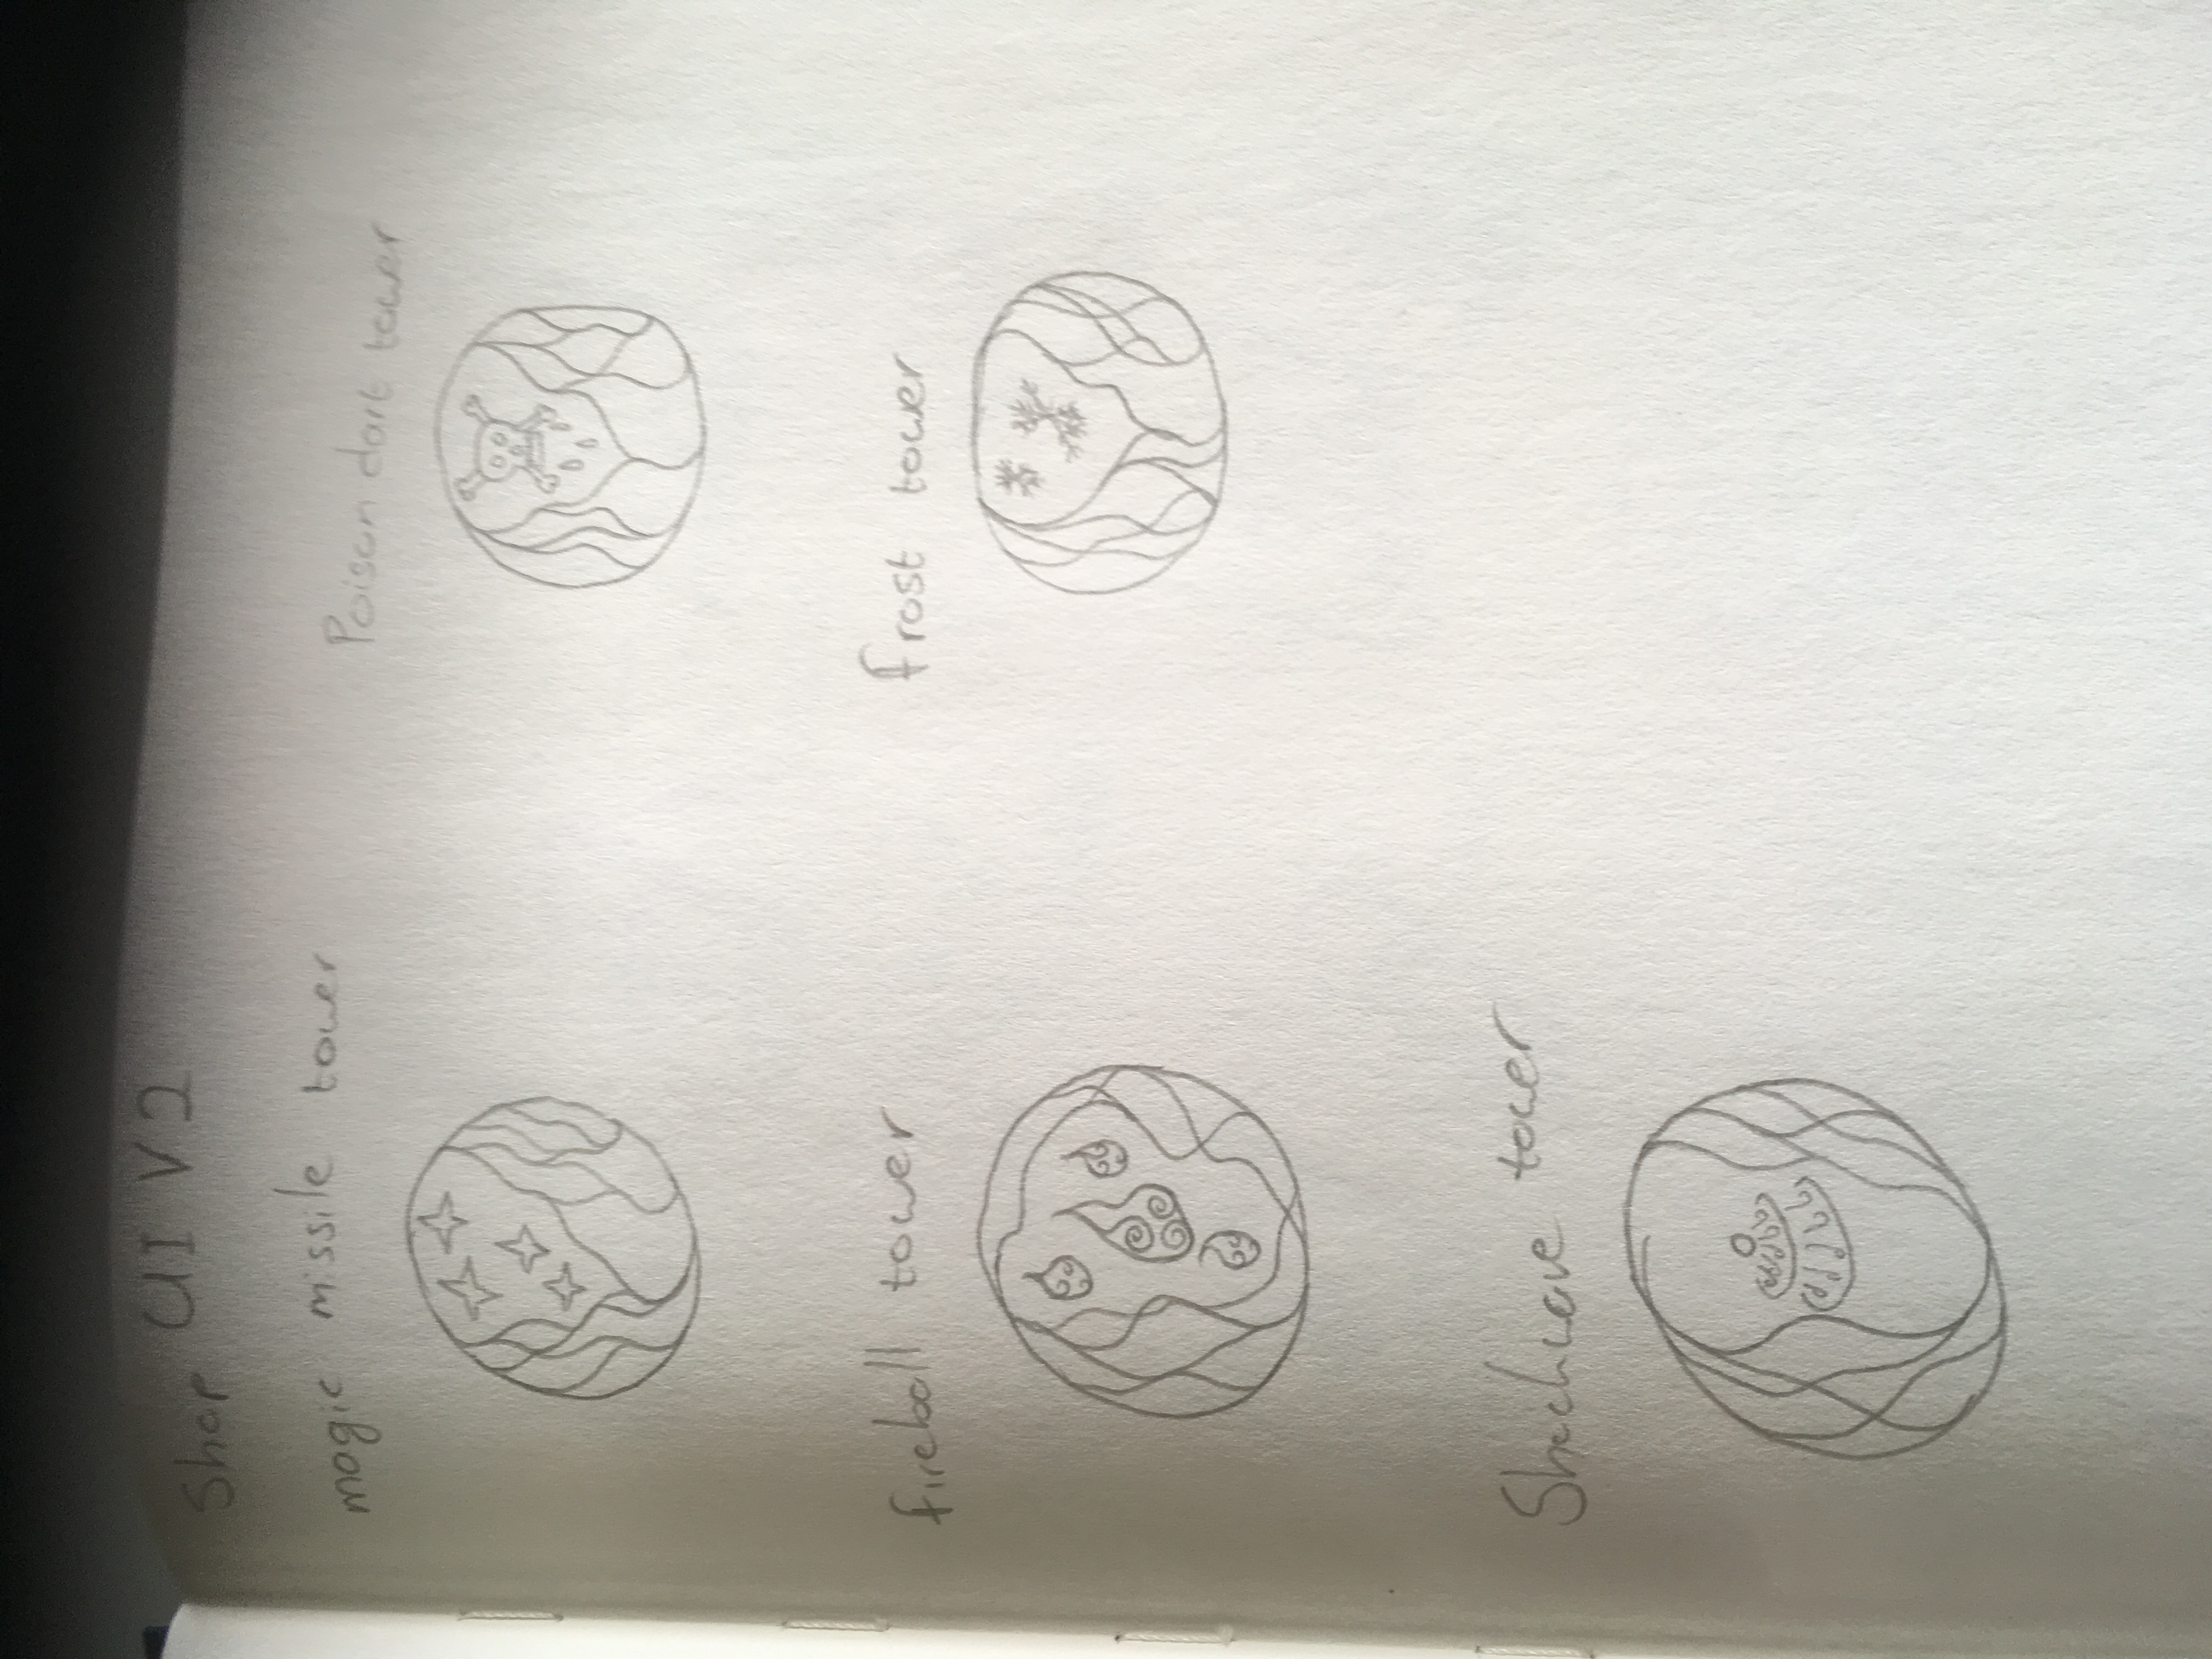 Shop UI V2
magic missile tower
Poison dart tower
fireball tower
frost tower
Shockwave tower